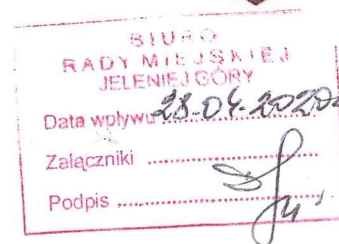 BIURO
RADY MIEJSKIEJ
JELENIEJ GÓRY
Data wpływu 28.04.2020
Załączniki ..................
Podpis ..................